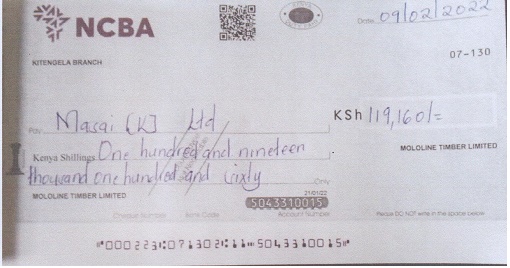 NCBA
Date 09/02/2022
07-130
KITENGELA BRANCH
Pay Masai (K) Ltd
KSh 119,160/=
Kenya Shillings One hundred and nineteen
thousand one hundred and sixty Only
MOLOLINE TIMBER LIMITED
MOLOLINE TIMBER LIMITED
21/01/22
5043310015
Cheque Number Bank Code Account Number
Please DO NOT write in the space below
"000223" 07130211 5043310015"